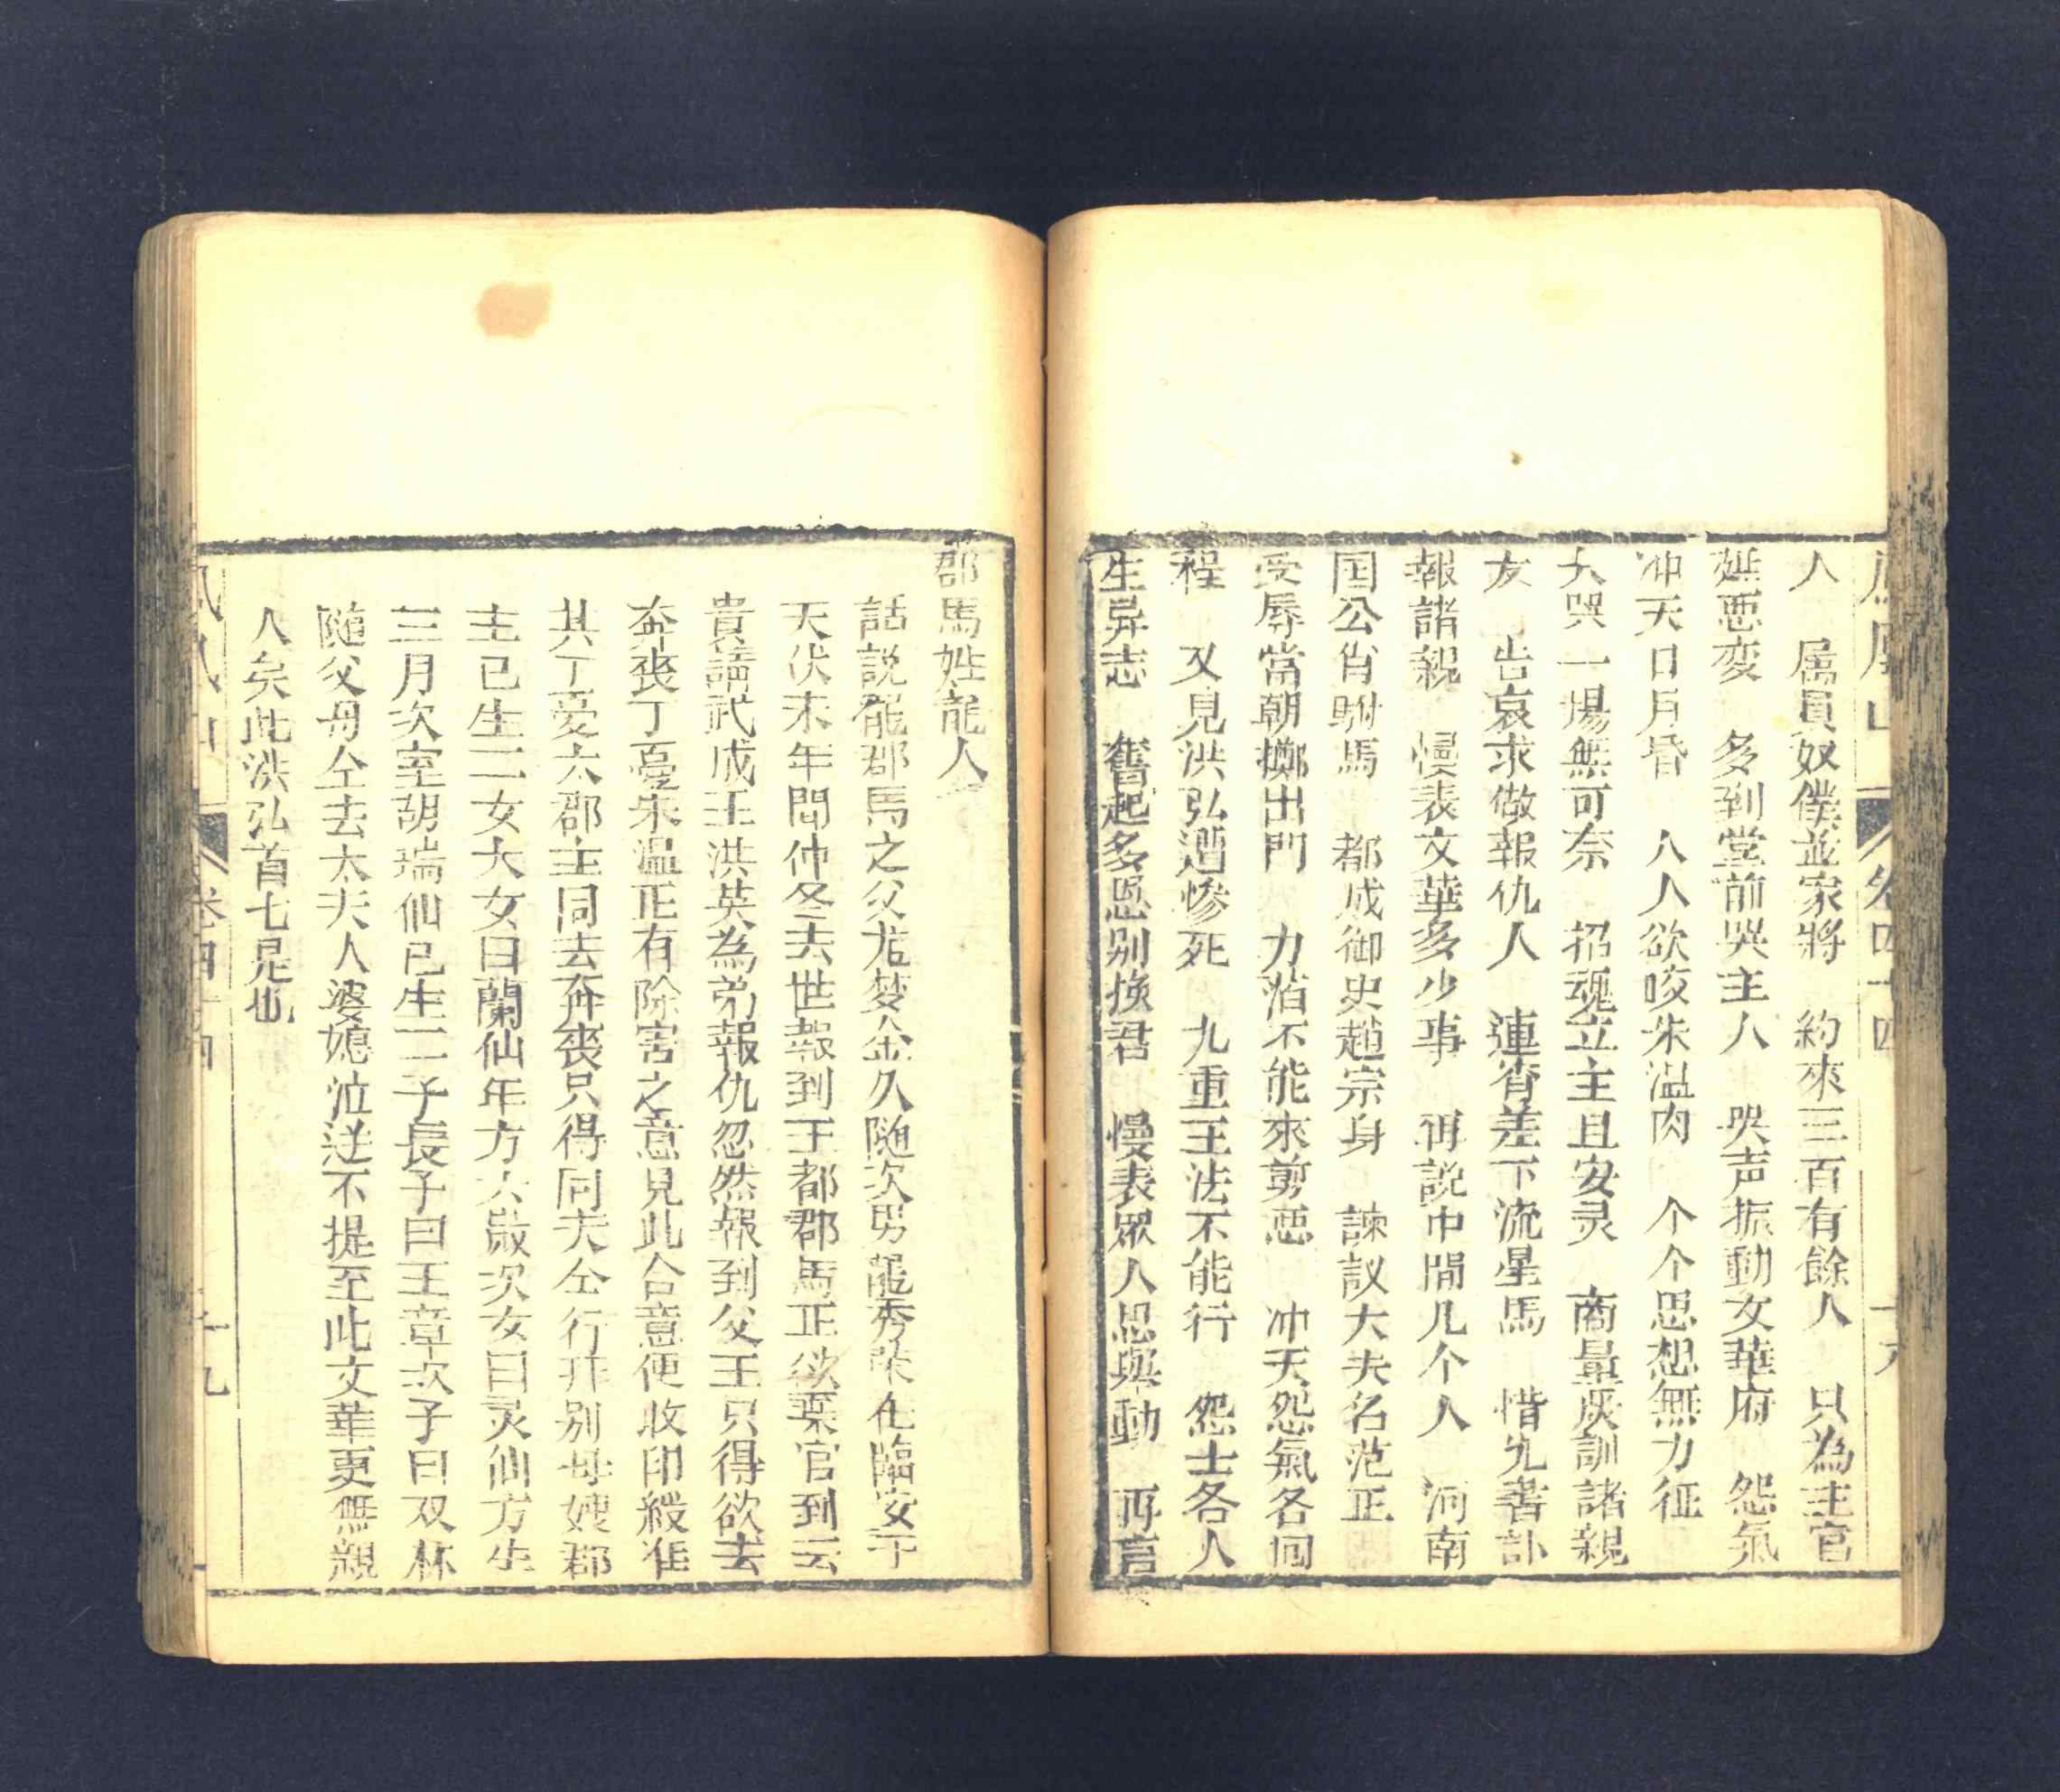 鳳凰山 卷四十四 十九
人 属員奴僕並家將 約來三百有餘人 只為主官
遭惡変 多到堂前哭主人 哭声振動文華府 怨氣
冲天日月昏 人人欲咬朱温肉 个个思想無力征
大哭一場無可奈 招魂立主且安灵 商量庆訓諸親
友 告哀求做報仇人 連宵差下流星馬 惜九書訃
報諸親 慢表文華多少事 再説中間几个人 河南
国公肖駙馬 都成御史趙宗身 諫議大夫名范正
受辱當朝擲出門 力消不能來剪惡 冲天怨氣各回
程 又見洪弘遭慘死 九重王法不能行 怨士各人
生异志 舊起多恩别换君 慢表眾人思與動 再言
郡馬姓龍人
話説龍郡馬之父龙梦金久随次男龍秀 在臨安于
天伏末年間仲冬去世報到王都郡馬正欲棄官到云
貴請武成王洪英為弟報仇忽然報到父王只得欲去
奔喪丁憂朱温正有除害之意見此合意便收印綬准
其丁憂大郡主同去奔喪只得同夫仝行拜别母嫂郡
主已生二女大女曰蘭仙年方六歲次女曰灵仙方生
三月次室胡瑞仙已生二子長子曰王章次子曰双林
随父母仝去太夫人婆媳泣送不提至此文華更無親
人矣此洪弘首七是也
鳳凰山 卷四十四 十九